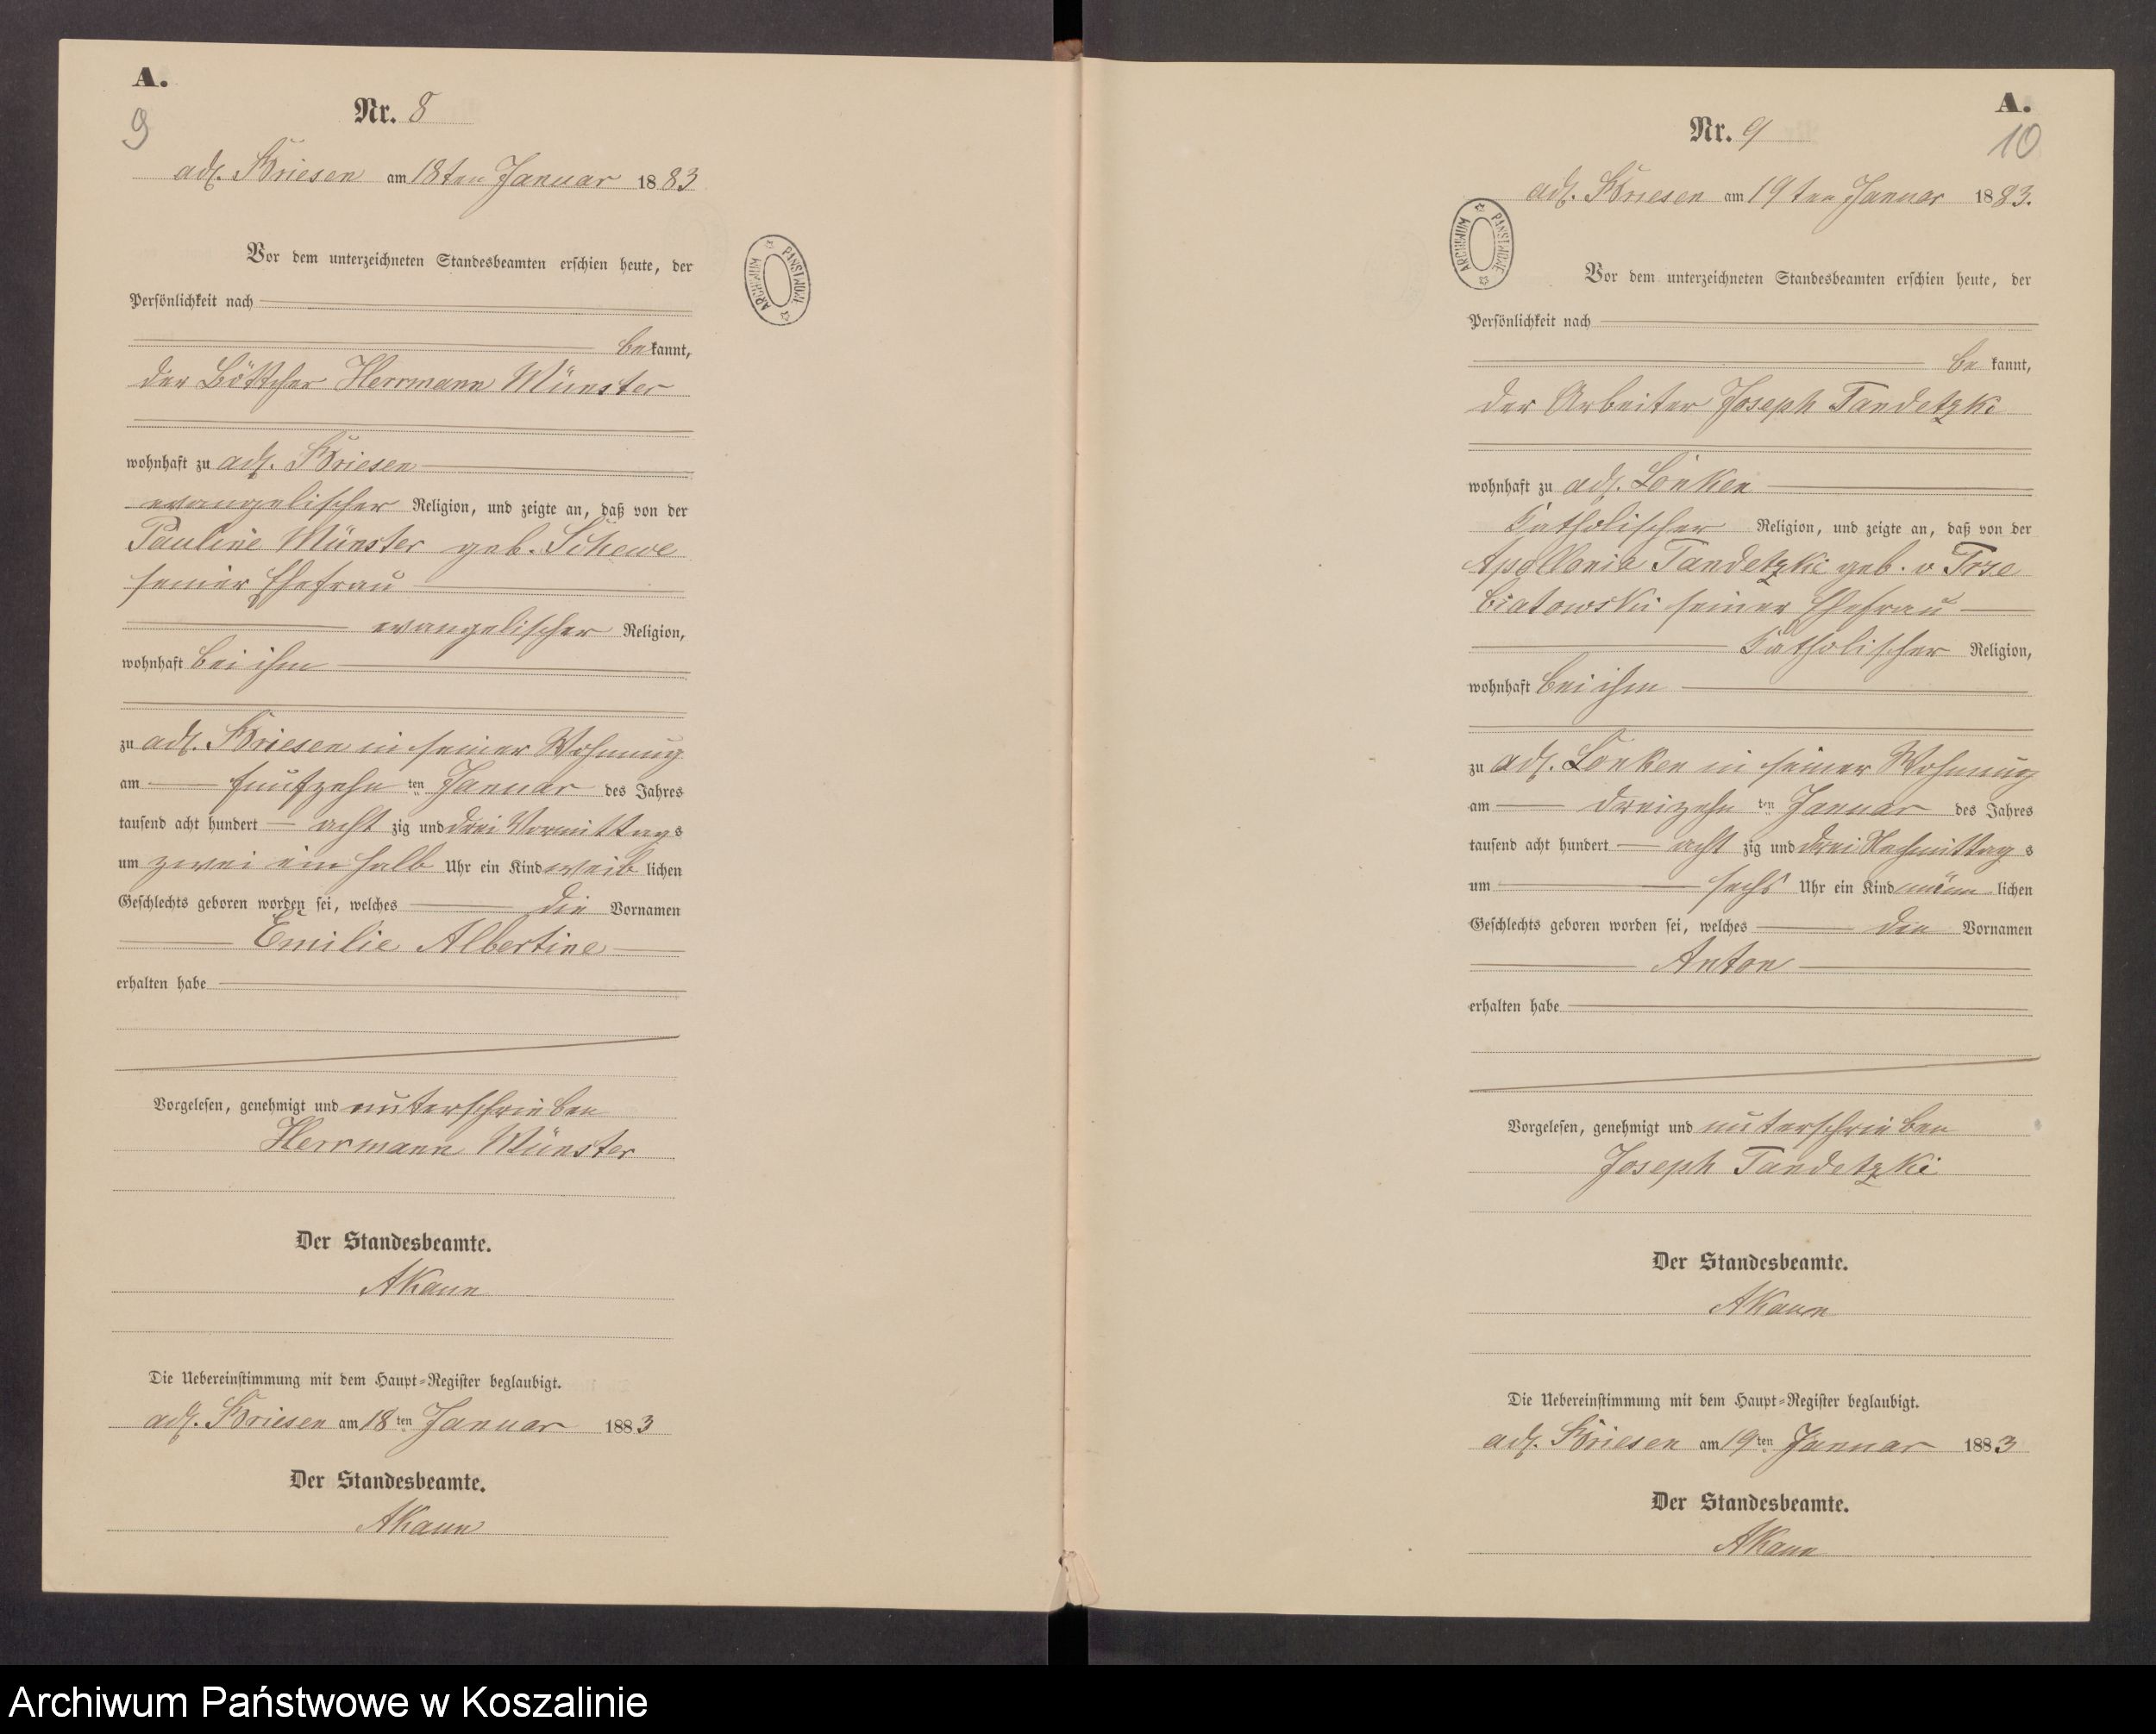 A.
9
Nr. 8
adl. Briesen am 18ten Januar 1883
Vor dem unterzeichneten Standesbeamten erschien heute, der
Persönlichkeit nach
bekannt,
der Böttcher Herrmann Münster
wohnhaft zu adl. Briesen
evangelischer Religion, und zeigte an, daß von der
Pauline Münster geb. Schewe
seiner Ehefrau
evangelischer Religion,
wohnhaft bei ihm
zu adl. Briesen in seiner Wohnung
am fünfzehn ten Januar des Jahres
tausend acht hundert acht zig und drei Vormittags
um zwei ein halb Uhr ein Kind weib lichen
Geschlechts geboren worden sei, welches die Vornamen
Emilie Albertine
erhalten habe
Vorgelesen, genehmigt und unterschrieben
Herrmann Münster
Der Standesbeamte.
AKaun
Die Uebereinstimmung mit dem Haupt-Register beglaubigt.
adl. Briesen am 18ten Januar 1883
Der Standesbeamte.
AKaun
ARCHIWUM PAŃSTWOWE
A.
10
Nr. 9
adl. Briesen am 19ten Januar 1883.
ARCHIWUM PAŃSTWOWE
Vor dem unterzeichneten Standesbeamten erschien heute, der
Persönlichkeit nach
be kannt,
der Arbeiter Joseph Tandetzki
wohnhaft zu adl. Lonken
Katholischer Religion, und zeigte an, daß von der
Apollonia Tandetzki geb. v Trze
biatowski seiner Ehefrau
Katholischer Religion,
wohnhaft bei ihm
zu adl. Lonken in seiner Wohnung
am dreizehn ten Januar des Jahres
tausend acht hundert acht zig und drei Nachmittag s
um sechs Uhr ein Kind männ lichen
Geschlechts geboren worden sei, welches den Vornamen
Anton
erhalten habe
Vorgelesen, genehmigt und unterschrieben
Joseph Tandetzki
Der Standesbeamte.
AKaun
Die Uebereinstimmung mit dem Haupt-Register beglaubigt.
adl. Briesen am 19ten Januar 1883
Der Standesbeamte.
AKaun
Archiwum Państwowe w Koszalinie